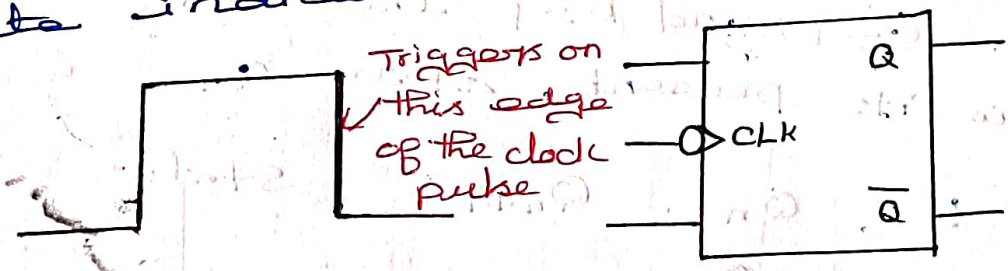 to
Triggers on
this edge
of the clock
pulse
Q
CLK
Q̅